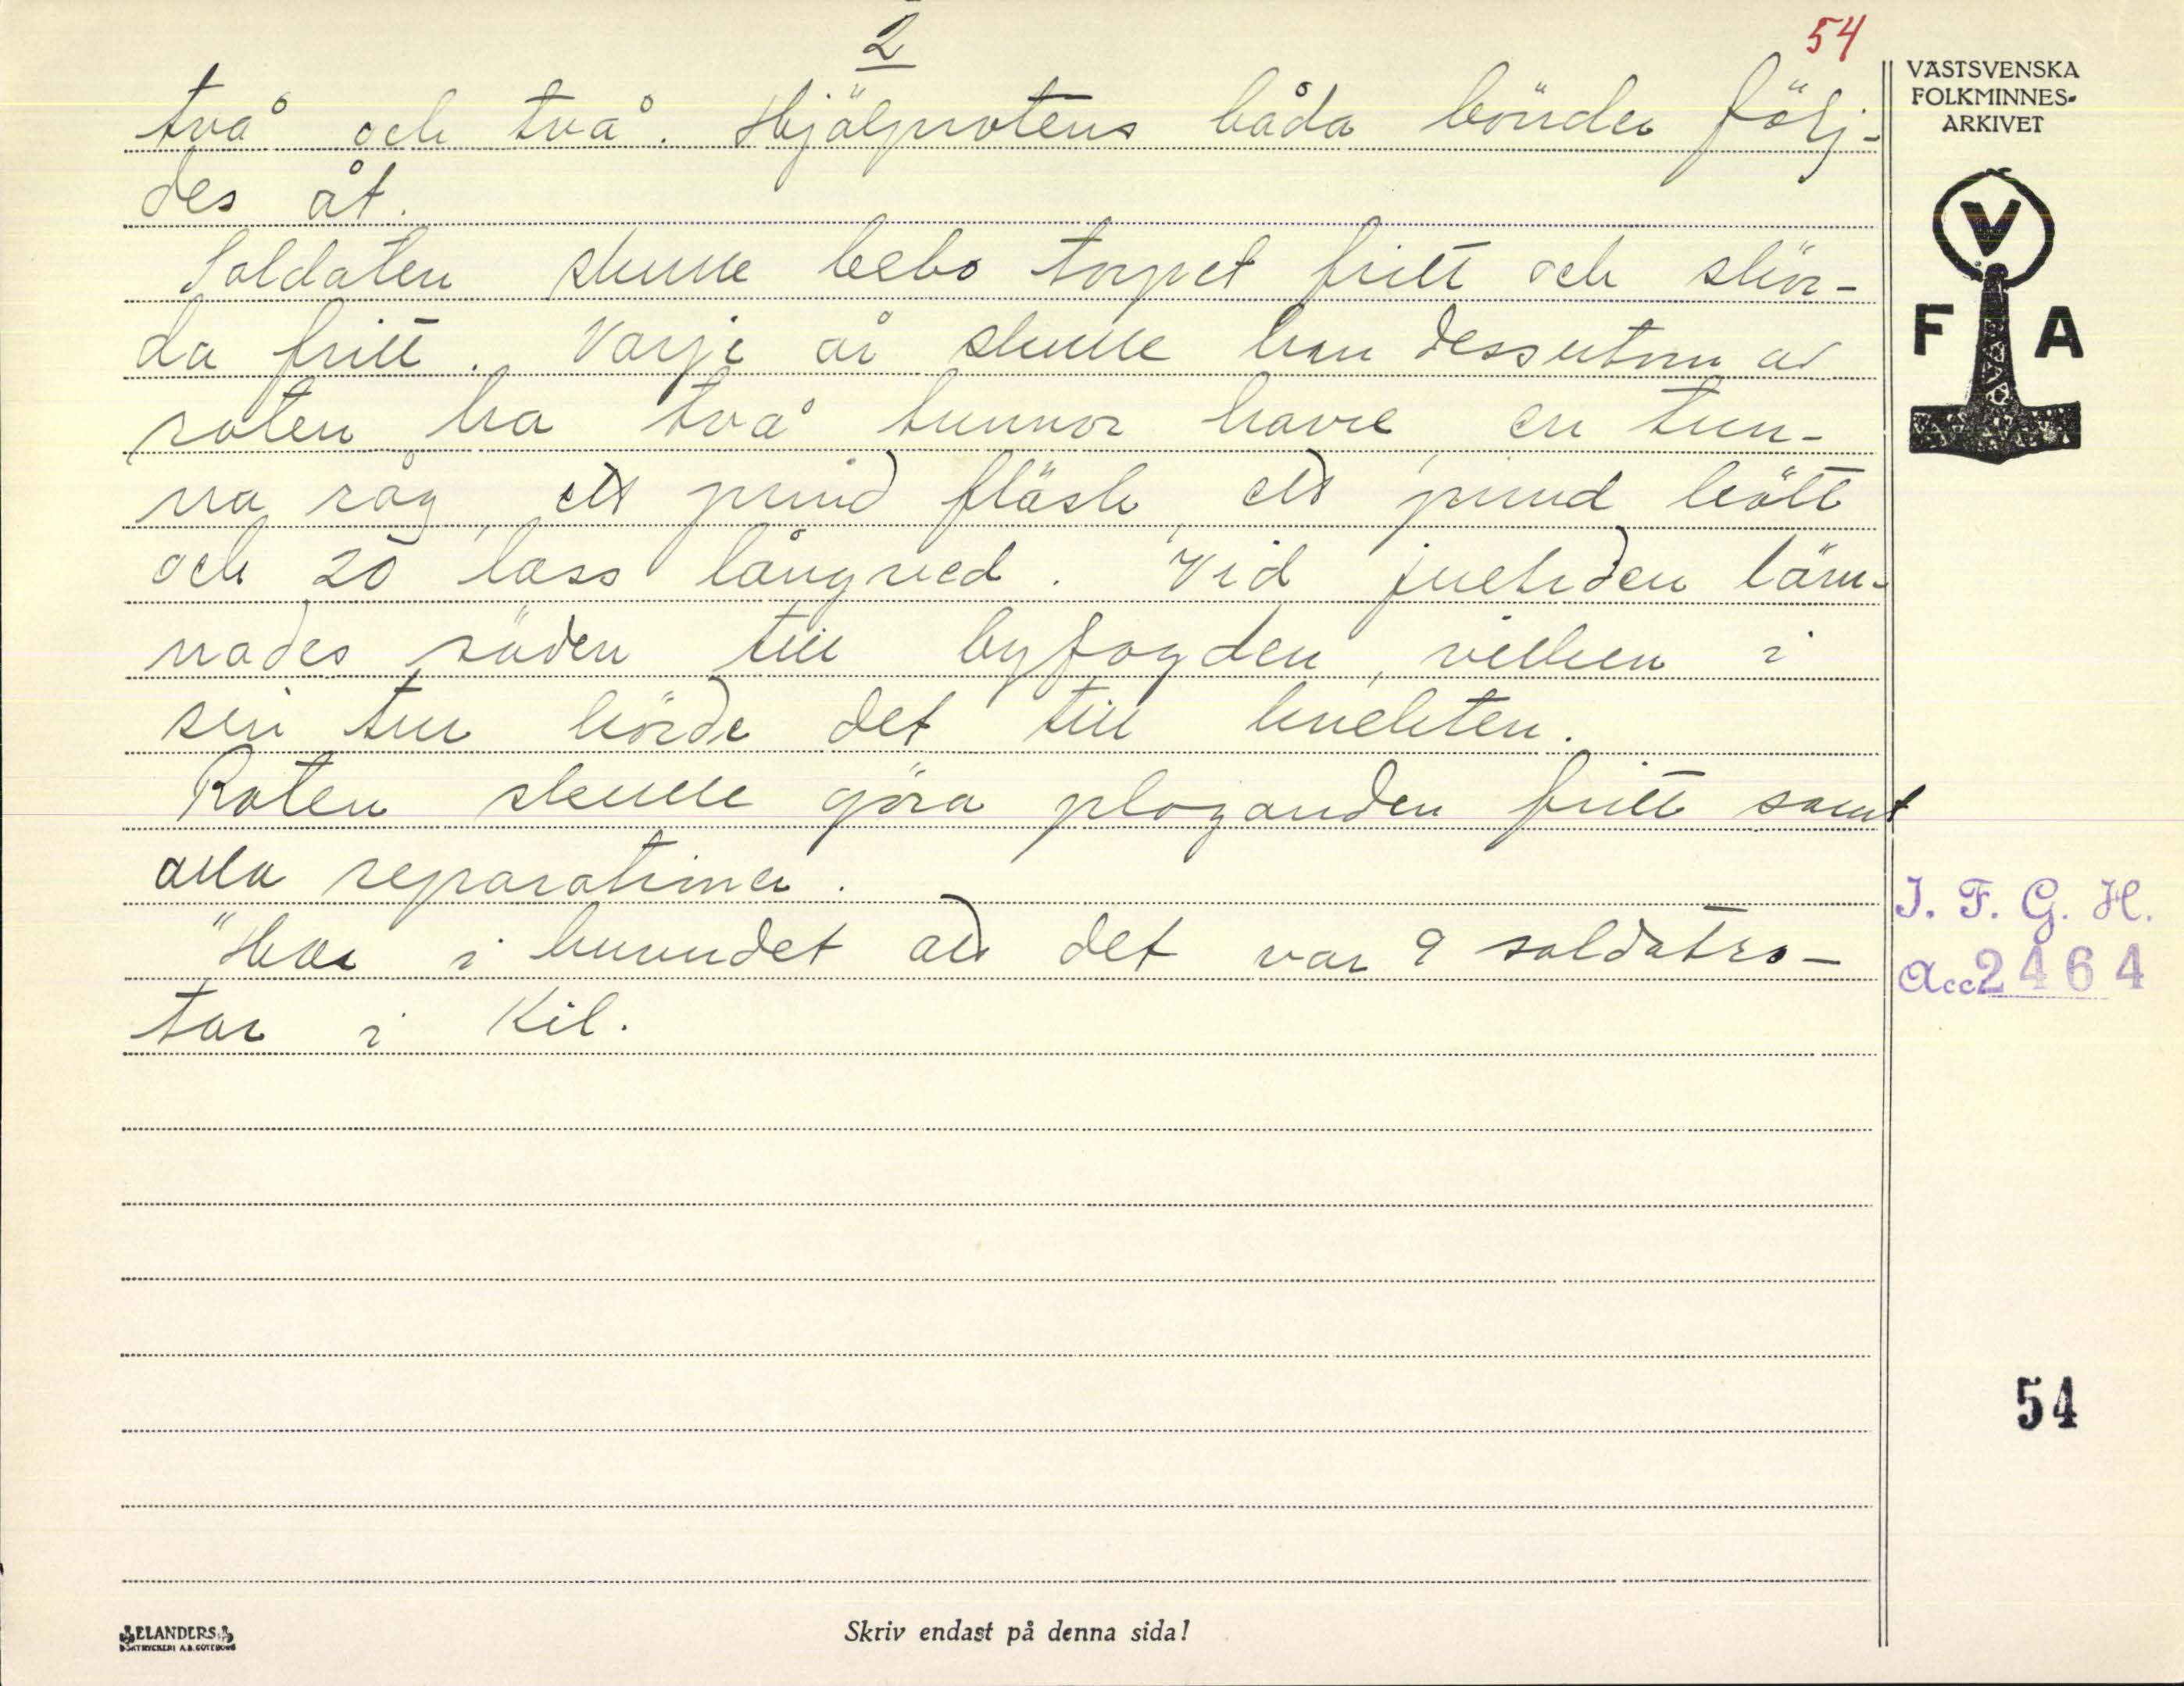 2
54
två och två. Hjälprotens båda bönder följ-
des åt.
Soldaten skulle bebo torpet fritt och skör-
da fritt. Varje år skulle han dessutom av
roten ha två tunnor havre, en tun-
na råg, ett pund fläsk, ett pund kött
och 20 lass långved. Vid jueltiden läm-
nades säden till byfogden, vilken i
sin tur körde det till knekten.
Roten skulle göra ploganden fritt samt
alla reparationer.
"Har i hunndet att det var 9 soldatro-
tar i Kil.
VÄSTSVENSKA
FOLKMINNES-
ARKIVET
V
F A
I. F. G. H.
Acc 2464
54
ELANDERS
BOKTRYCKERI A.B. GÖTEBORG
Skriv endast på denna sida!